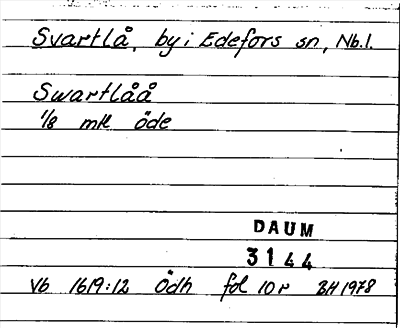 Svartlå, by i Edefors sn, Nb.l.
Swartlåå
1/8 mtl öde
DAUM
3144
Vb 1619:12 Ödh fol 10r BH 1978